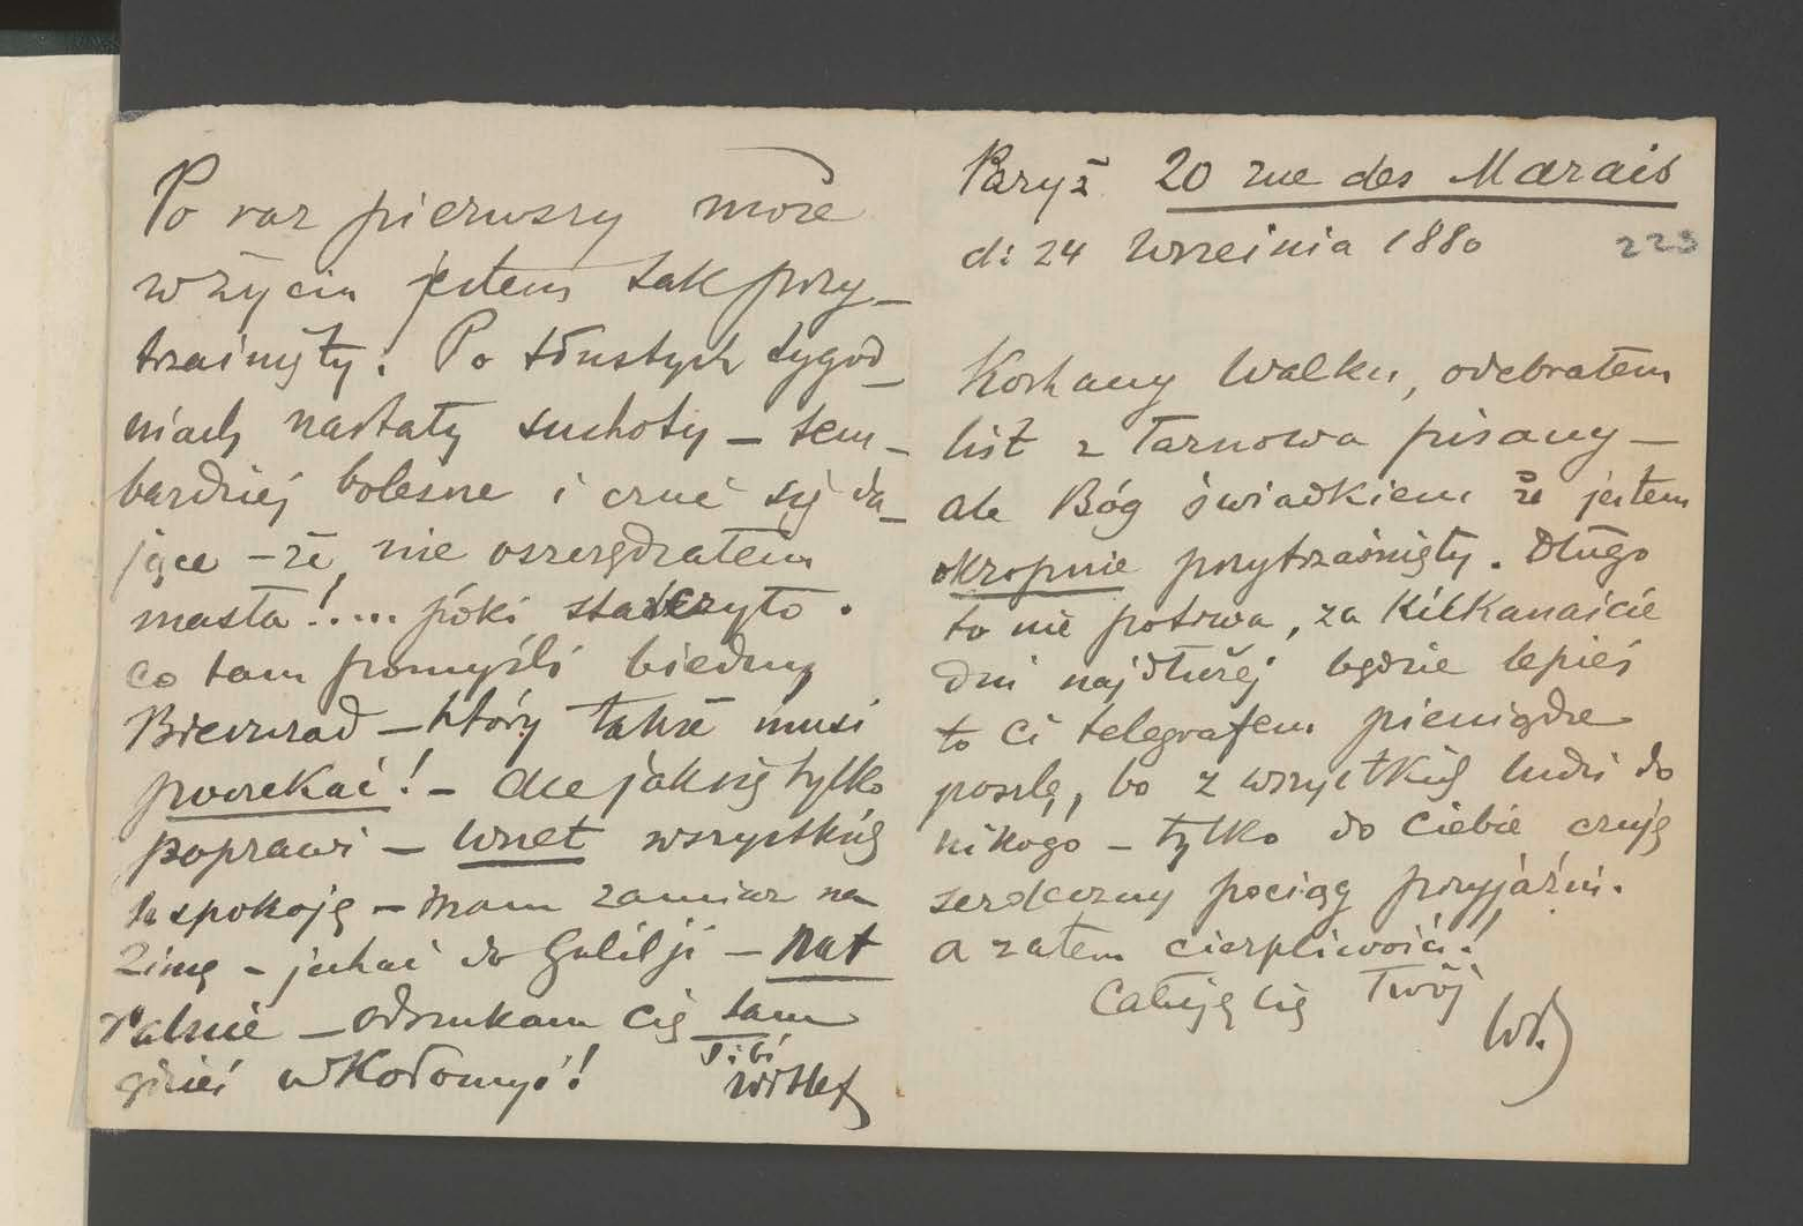 Paryż 20 rue des Marais
d: 24 Września 1880
223
Kochany Walku, odebrałem
list z Tarnowa pisany –
ale Bóg świadkiem że jestem
okropnie przytrzaśnięty. Długo
to nie potrwa, za kilkanaście
dni najdłużej będzie lepiej
to ci telegrafem pieniądze
poszlę, bo z wszystkich ludzi do
nikogo – tylko do Ciebie czuję
serdeczny pociąg przyjaźni.
a zatem cierpliwości!
Całuję cię Twój
Wł.
Po raz pierwszy może
w życiu jestem tak przy–
trzaśnięty! Po tłustych tygod–
niach nastały suchoty – tem–
bardziej bolesne i czuć się da–
jące – że nie oszczędzałem
masła!.... póki starczyło.
co tam pomyśli biedny
– który także musi
poczekać! – ale jak się tylko
poprawi – wnet wszystkich
uspokoję – mam zamiar na
zimę – jechać do Galilji – nat
ralnie – odszukam cię tam
gdzieś w Kołomyi!